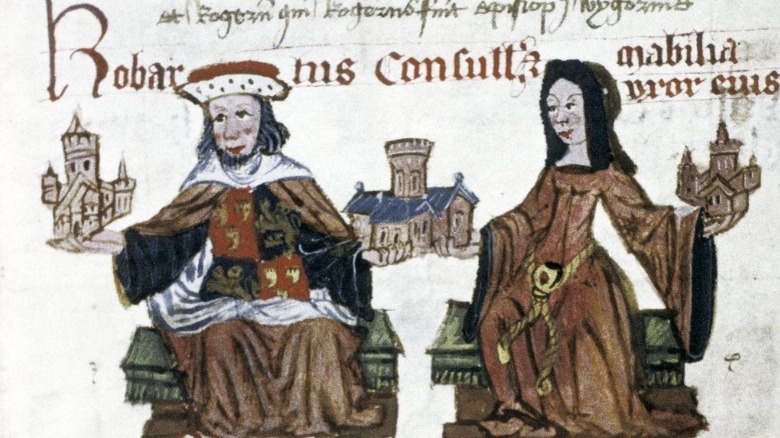 et Rogerū qui Rogerus fuit episcop) wygornie
Robartus Consull & mabilia
uxor eius